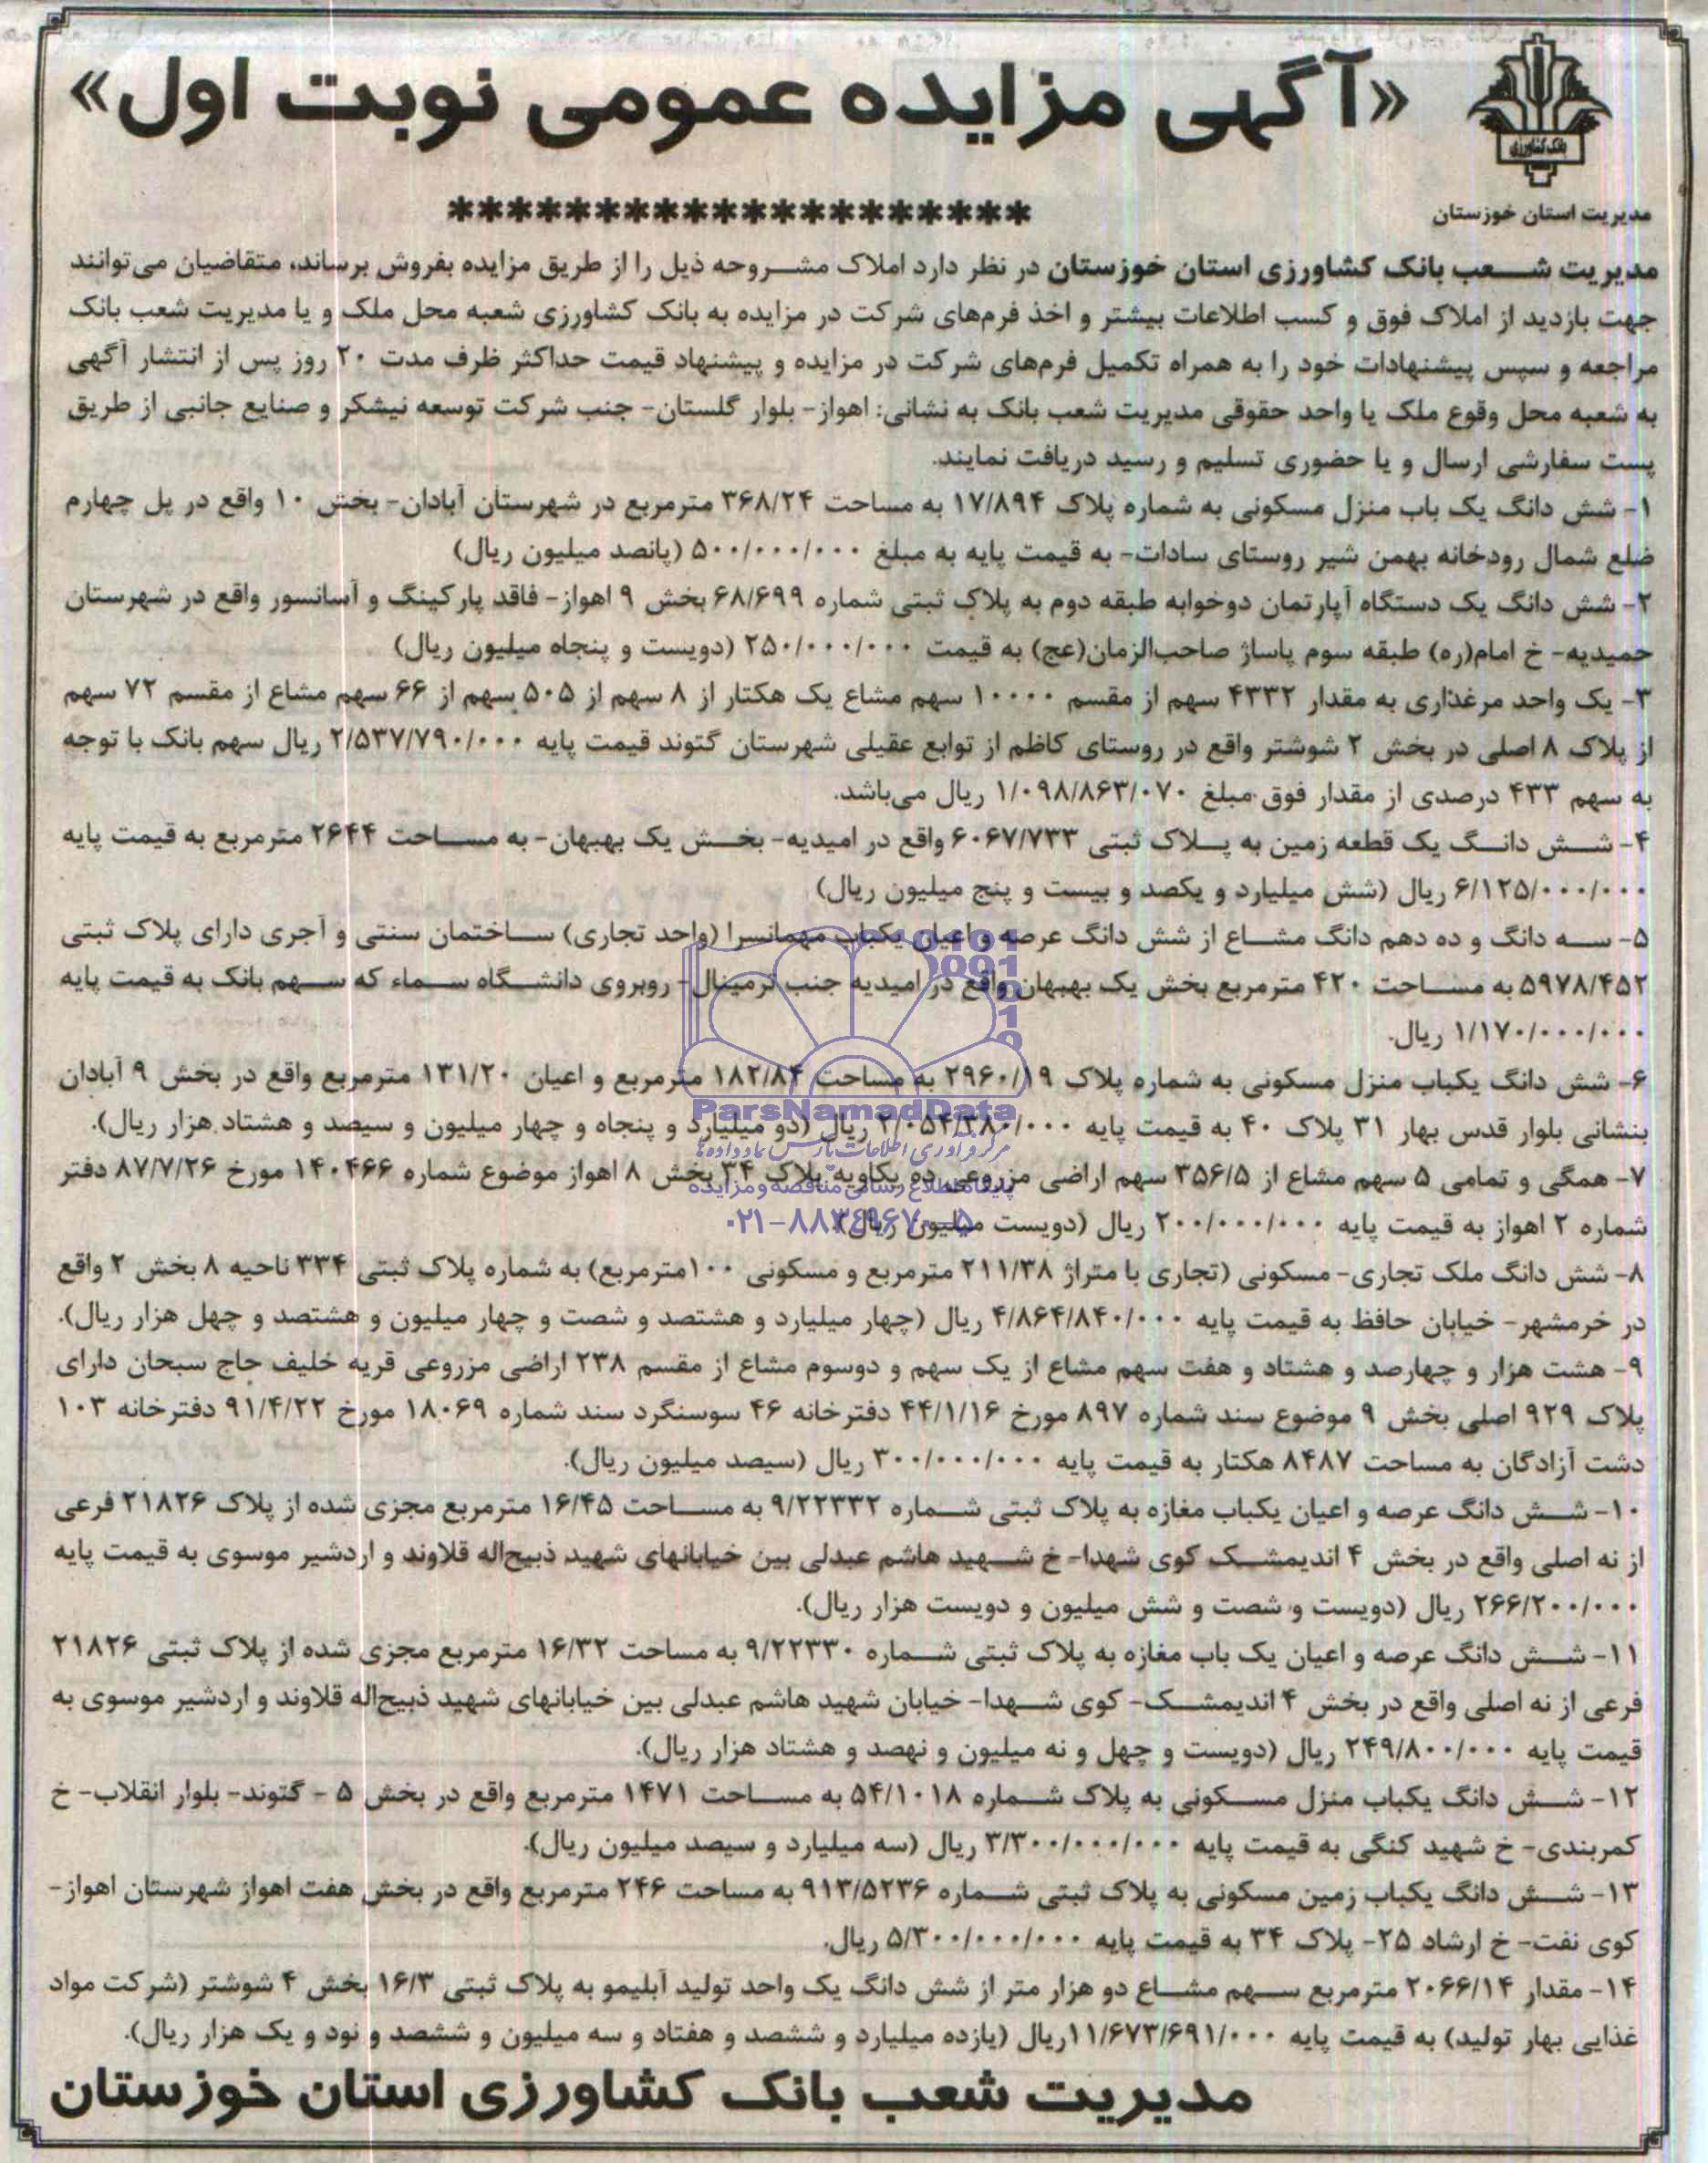 «آگهی مزایده عمومی نوبت اول»
بانک کشاورزی
مدیریت استان خوزستان
********************
مدیریت شعب بانک کشاورزی استان خوزستان در نظر دارد املاک مشروحه ذیل را از طریق مزایده بفروش برساند، متقاضیان می‌توانند
جهت بازدید از املاک فوق و کسب اطلاعات بیشتر و اخذ فرم‌های شرکت در مزایده به بانک کشاورزی شعبه محل ملک و یا مدیریت شعب بانک
مراجعه و سپس پیشنهادات خود را به همراه تکمیل فرم‌های شرکت در مزایده و پیشنهاد قیمت حداکثر ظرف مدت ۲۰ روز پس از انتشار آگهی
به شعبه محل وقوع ملک یا واحد حقوقی مدیریت شعب بانک به نشانی: اهواز- بلوار گلستان- جنب شرکت توسعه نیشکر و صنایع جانبی از طریق
پست سفارشی ارسال و یا حضوری تسلیم و رسید دریافت نمایند.
۱- شش دانگ یک باب منزل مسکونی به شماره پلاک ۱۷/۸۹۴ به مساحت ۳۶۸/۲۴ مترمربع در شهرستان آبادان- بخش ۱۰ واقع در پل چهارم
ضلع شمال رودخانه بهمن شیر روستای سادات- به قیمت پایه به مبلغ ۵۰۰/۰۰۰/۰۰۰ (پانصد میلیون ریال)
۲- شش دانگ یک دستگاه آپارتمان دوخوابه طبقه دوم به پلاک ثبتی شماره ۶۸/۶۹۹ بخش ۹ اهواز- فاقد پارکینگ و آسانسور واقع در شهرستان
حمیدیه- خ امام(ره) طبقه سوم پاساژ صاحب‌الزمان(عج) به قیمت ۲۵۰/۰۰۰/۰۰۰ (دویست و پنجاه میلیون ریال)
۳- یک واحد مرغداری به مقدار ۴۳۳۲ سهم از مقسم ۱۰۰۰۰ سهم مشاع یک هکتار از ۸ سهم از ۵۰۵ سهم از ۶۶ سهم مشاع از مقسم ۷۲ سهم
از پلاک ۸ اصلی در بخش ۲ شوشتر واقع در روستای کاظم از توابع عقیلی شهرستان گتوند قیمت پایه ۲/۵۳۷/۷۹۰/۰۰۰ ریال سهم بانک با توجه
به سهم ۴۳۳ درصدی از مقدار فوق مبلغ ۱/۰۹۸/۸۶۳/۰۷۰ ریال می‌باشد.
۴- شش دانگ یک قطعه زمین به پلاک ثبتی ۶۰۶۷/۷۳۳ واقع در امیدیه- بخش یک بهبهان- به مساحت ۲۶۴۴ مترمربع به قیمت پایه
۶/۱۲۵/۰۰۰/۰۰۰ ریال (شش میلیارد و یکصد و بیست و پنج میلیون ریال)
۵- سه دانگ و ده دهم دانگ مشاع از شش دانگ عرصه و اعیان یکباب مهمانسرا (واحد تجاری) ساختمان سنتی و آجری دارای پلاک ثبتی
۵۹۷۸/۴۵۲ به مساحت ۴۲۰ مترمربع بخش یک بهبهان واقع در امیدیه جنب ترمینال- روبروی دانشگاه سماء که سهم بانک به قیمت پایه
۱/۱۷۰/۰۰۰/۰۰۰ ریال.
۶- شش دانگ یکباب منزل مسکونی به شماره پلاک ۲۹۶۰/۱۹ به مساحت ۱۸۲/۸۴ مترمربع و اعیان ۱۳۱/۲۰ مترمربع واقع در بخش ۹ آبادان
ParsNamadData
بنشانی بلوار قدس بهار ۳۱ پلاک ۴۰ به قیمت پایه ۲/۰۵۴/۳۸۰/۰۰۰ ریال (دو میلیارد و پنجاه و چهار میلیون و سیصد و هشتاد هزار ریال).
مرکز فرآوری اطلاعات پارس نماد داده‌ها
۷- همگی و تمامی ۵ سهم مشاع از ۳۵۶/۵ سهم اراضی مزروعی ده یکاویه پلاک ۳۴ بخش ۸ اهواز موضوع شماره ۱۴۰۴۶۶ مورخ ۸۷/۷/۲۶ دفتر
پایگاه اطلاع رسانی مناقصه و مزایده
شماره ۲ اهواز به قیمت پایه ۲۰۰/۰۰۰/۰۰۰ ریال (دویست میلیون ریال).
۰۲۱-۸۸۳۴۹۶۷۰-۵
۸- شش دانگ ملک تجاری- مسکونی (تجاری با متراژ ۲۱۱/۳۸ مترمربع و مسکونی ۱۰۰مترمربع) به شماره پلاک ثبتی ۳۳۴ ناحیه ۸ بخش ۲ واقع
در خرمشهر- خیابان حافظ به قیمت پایه ۴/۸۶۴/۸۴۰/۰۰۰ ریال (چهار میلیارد و هشتصد و شصت و چهار میلیون و هشتصد و چهل هزار ریال).
۹- هشت هزار و چهارصد و هشتاد و هفت سهم مشاع از یک سهم و دوسوم مشاع از مقسم ۲۳۸ اراضی مزروعی قریه خلیف حاج سبحان دارای
پلاک ۹۲۹ اصلی بخش ۹ موضوع سند شماره ۸۹۷ مورخ ۴۴/۱/۱۶ دفترخانه ۴۶ سوسنگرد سند شماره ۱۸۰۶۹ مورخ ۹۱/۴/۲۲ دفترخانه ۱۰۳
دشت آزادگان به مساحت ۸۴۸۷ هکتار به قیمت پایه ۳۰۰/۰۰۰/۰۰۰ ریال (سیصد میلیون ریال).
۱۰- شش دانگ عرصه و اعیان یکباب مغازه به پلاک ثبتی شماره ۹/۲۲۳۳۲ به مساحت ۱۶/۴۵ مترمربع مجزی شده از پلاک ۲۱۸۲۶ فرعی
از نه اصلی واقع در بخش ۴ اندیمشک کوی شهدا- خ شهید هاشم عبدلی بین خیابانهای شهید ذبیح‌اله قلاوند و اردشیر موسوی به قیمت پایه
۲۶۶/۲۰۰/۰۰۰ ریال (دویست و شصت و شش میلیون و دویست هزار ریال).
۱۱- شش دانگ عرصه و اعیان یک باب مغازه به پلاک ثبتی شماره ۹/۲۲۳۳۰ به مساحت ۱۶/۳۲ مترمربع مجزی شده از پلاک ثبتی ۲۱۸۲۶
فرعی از نه اصلی واقع در بخش ۴ اندیمشک- کوی شهدا- خیابان شهید هاشم عبدلی بین خیابانهای شهید ذبیح‌اله قلاوند و اردشیر موسوی به
قیمت پایه ۲۴۹/۸۰۰/۰۰۰ ریال (دویست و چهل و نه میلیون و نهصد و هشتاد هزار ریال).
۱۲- شش دانگ یکباب منزل مسکونی به پلاک شماره ۵۴/۱۰۱۸ به مساحت ۱۴۷۱ مترمربع واقع در بخش ۵ - گتوند- بلوار انقلاب- خ
کمربندی- خ شهید کنگی به قیمت پایه ۳/۳۰۰/۰۰۰/۰۰۰ ریال (سه میلیارد و سیصد میلیون ریال).
۱۳- شش دانگ یکباب زمین مسکونی به پلاک ثبتی شماره ۹۱۳/۵۲۳۶ به مساحت ۲۴۶ مترمربع واقع در بخش هفت اهواز شهرستان اهواز-
کوی نفت- خ ارشاد ۲۵- پلاک ۳۴ به قیمت پایه ۵/۳۰۰/۰۰۰/۰۰۰ ریال.
۱۴- مقدار ۲۰۶۶/۱۴ مترمربع سهم مشاع دو هزار متر از شش دانگ یک واحد تولید آبلیمو به پلاک ثبتی ۱۶/۳ بخش ۴ شوشتر (شرکت مواد
غذایی بهار تولید) به قیمت پایه ۱۱/۶۷۳/۶۹۱/۰۰۰ریال (یازده میلیارد و ششصد و هفتاد و سه میلیون و ششصد و نود و یک هزار ریال).
مدیریت شعب بانک کشاورزی استان خوزستان